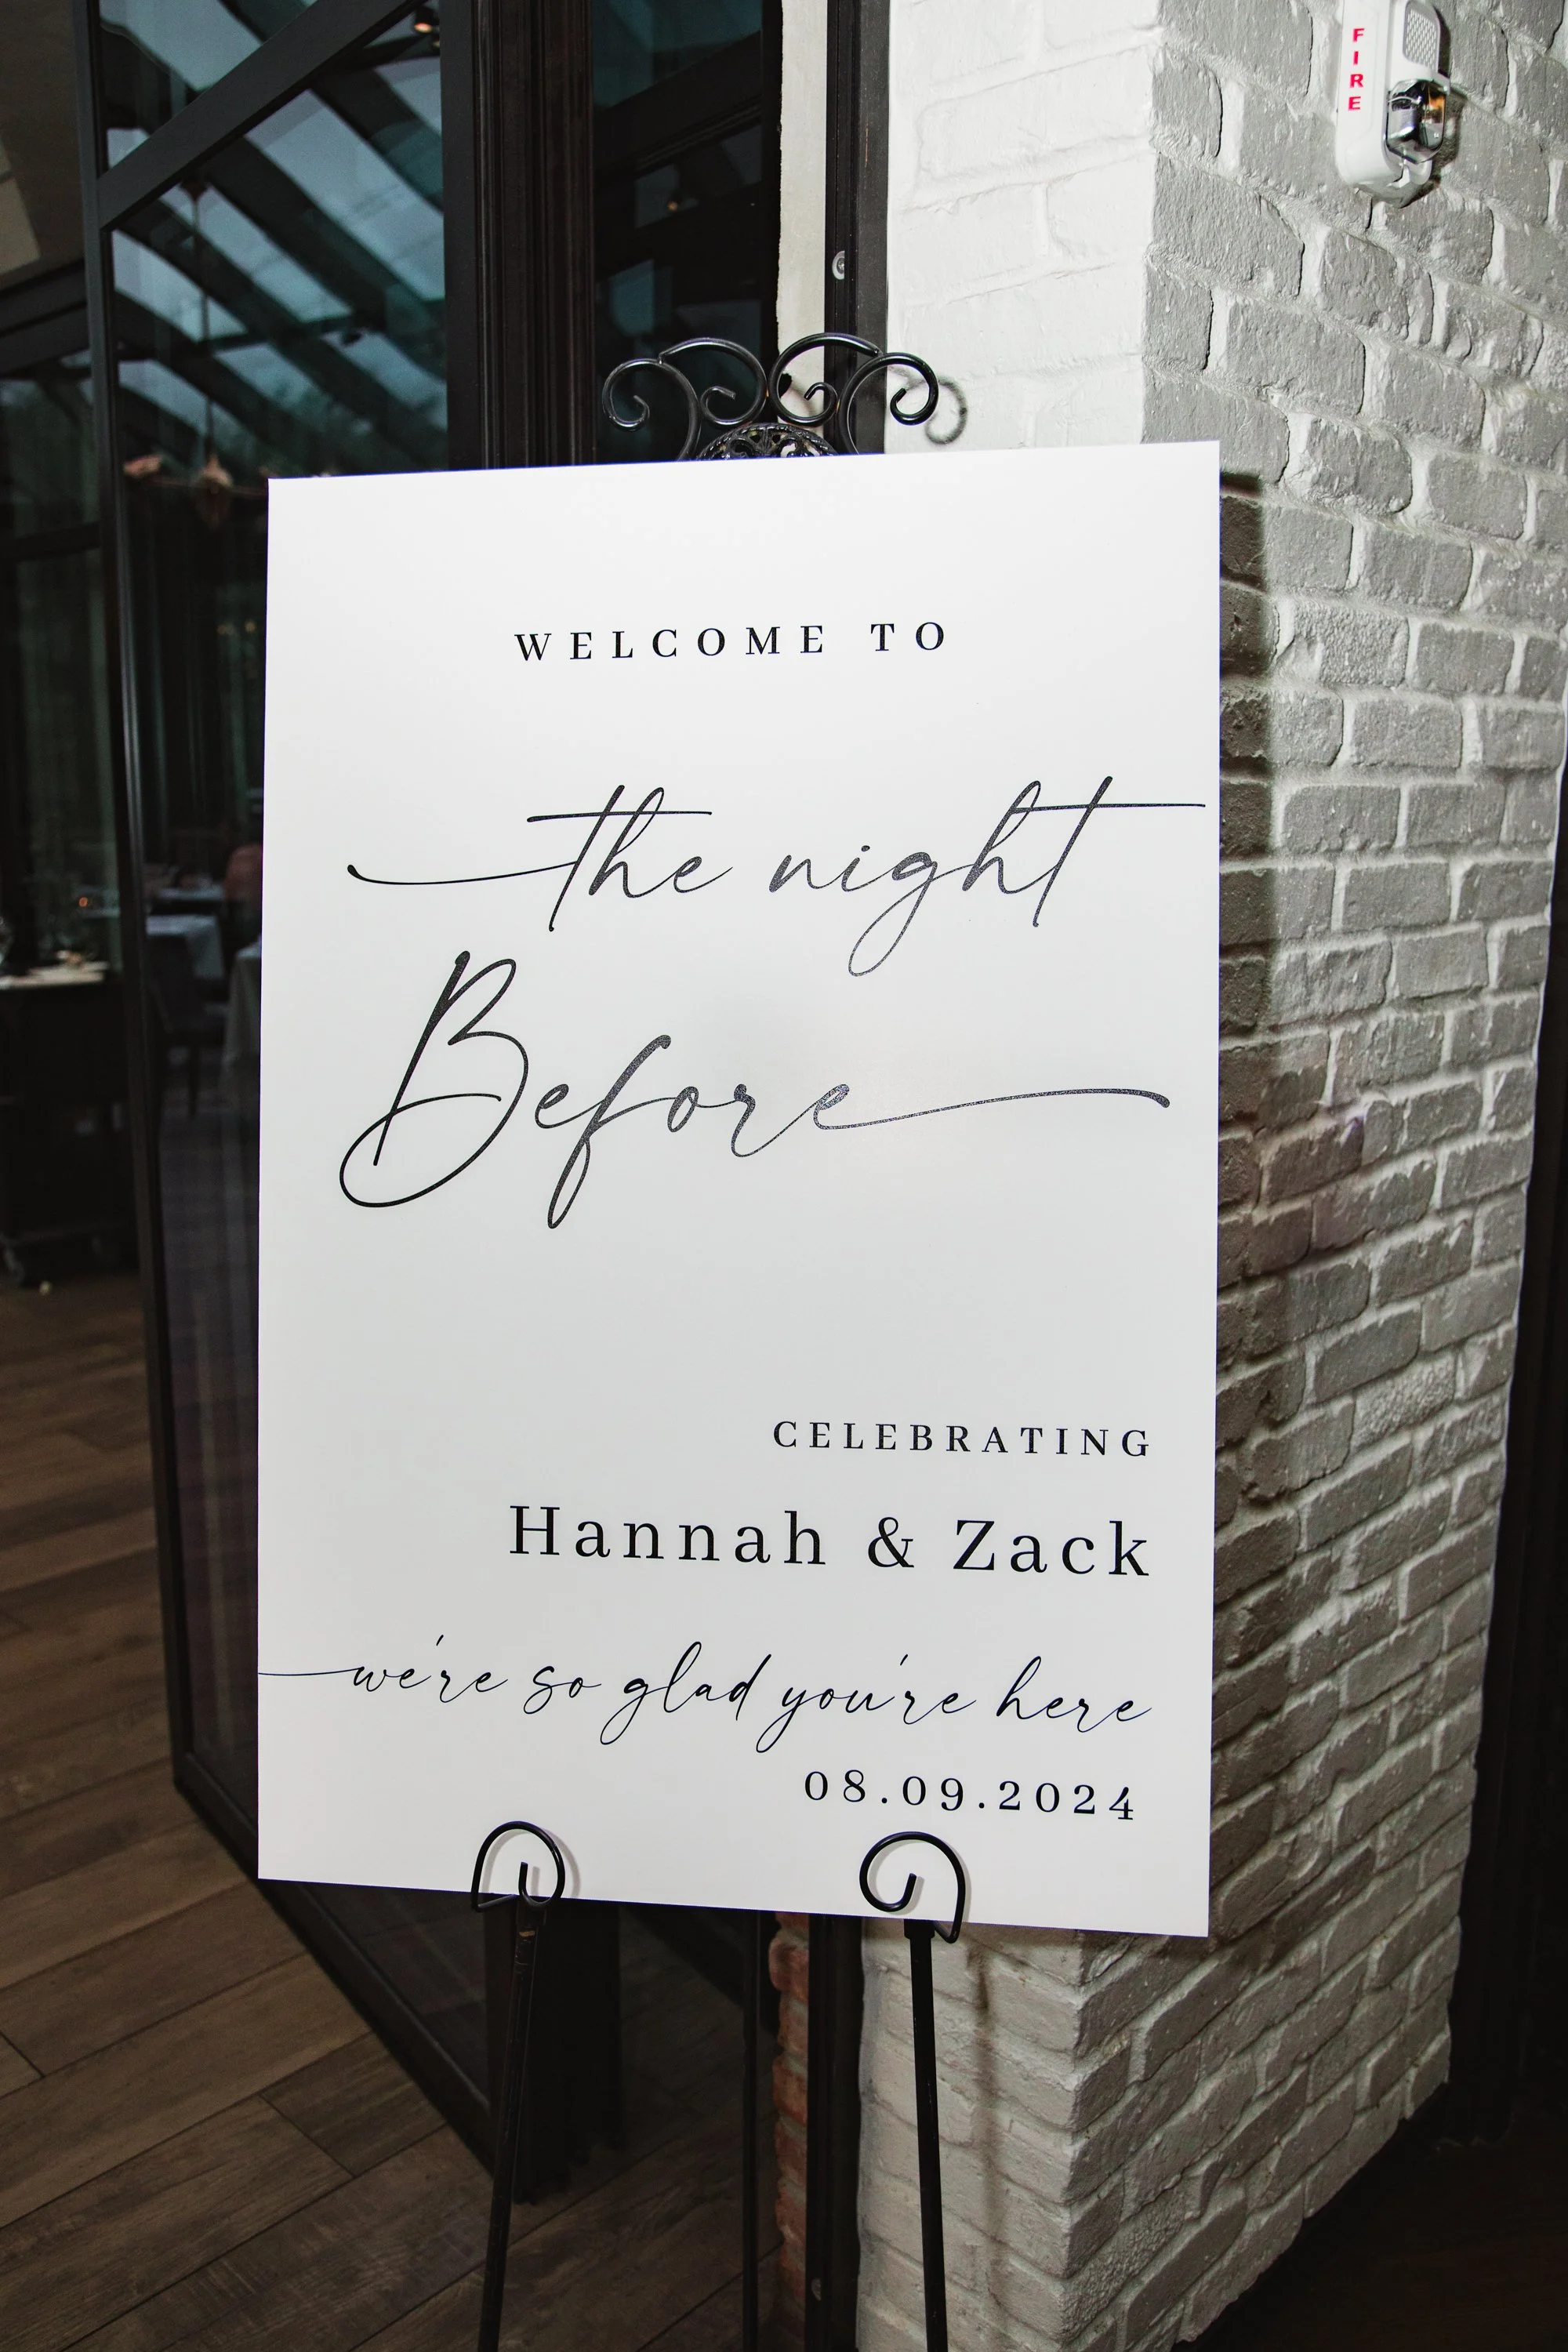 FIRE
WELCOME TO
the night
Before
CELEBRATING
Hannah & Zack
we're so glad you're here
08.09.2024